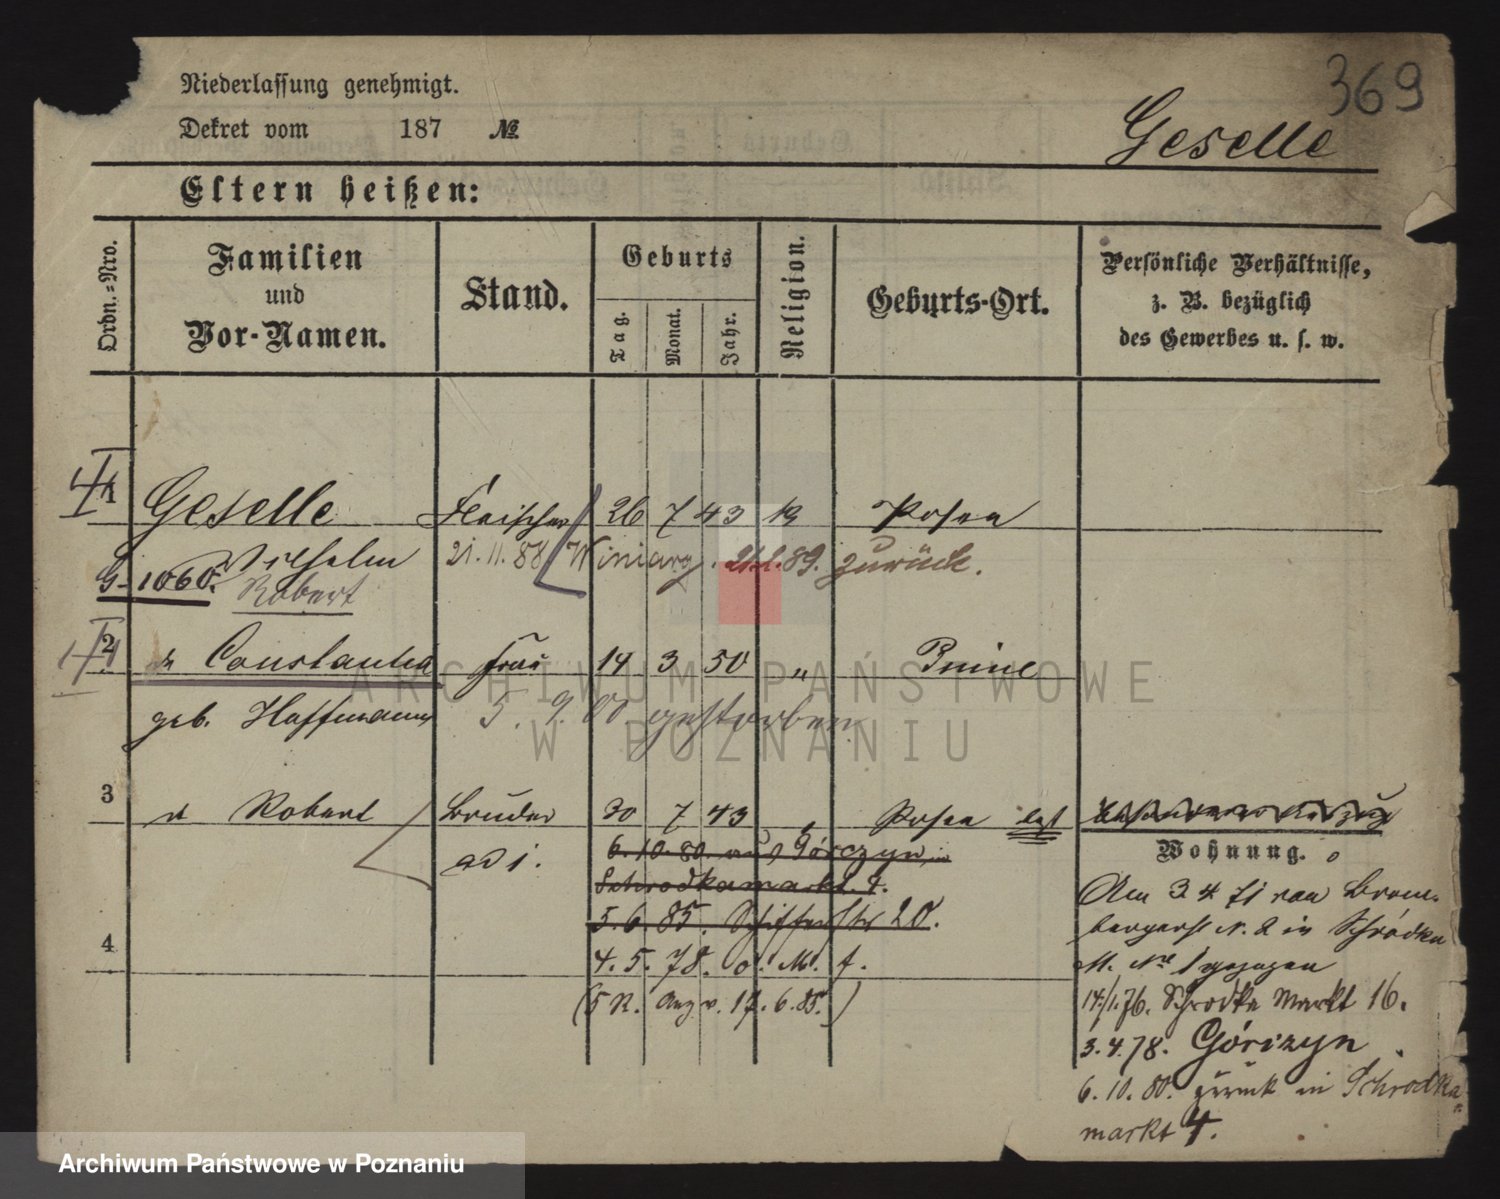 369
Niederlassung genehmigt.
Dekret vom 187 №
Geselle
Eltern heißen:
Ordn.=Nro.
Familien
und
Vor-Namen.
Stand.
Geburts
Tag.
Monat.
Jahr.
Religion.
Geburts-Ort.
Persönliche Verhältnisse,
z. B. bezüglich
des Gewerbes u. s. w.
1 Geselle Fleischer 26 7 43 k Posen
Wilhelm 21.11.88 Winiary. 21.2.89. zurück.
G-1060. Robert
2 Constantia Frau 14 3 50 " Pinne
geb. Hoffmann 5. 9. 00 gestorben
3 Robert Bruder 30 7 43 " Posen
ad 1.
6.10.80. aus Górczyn in
Schrodkamarkt 4.
5.6.85. Schifferstr 20.
4
4.5.78. o. M. f.
(5 R. Anz v. 17.6.85.)
Wohnung.
Am 3 4 71 von Brom-
bergerst N. 2 in Schrodka
M. No 1 gezogen
14./1.76. Schrodka Markt 16.
3.4.78. Górczyn
6.10.80. zurück in Schrodka
markt 4.
ARCHIWUM PAŃSTWOWE
W POZNANIU
Archiwum Państwowe w Poznaniu